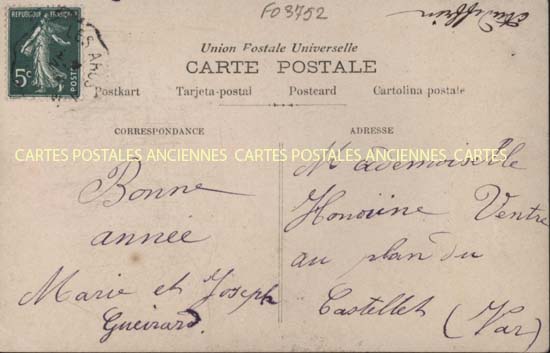 FO3752
REPUBLIQUE FRANÇAISE
5c
POSTES
LES ARCS
Union Postale Universelle
CARTE POSTALE
Postkart Tarjeta-postal Postcard Cartolina postale
CORRESPONDANCE
Bonne
année
Marie et Joseph
Gueirard.
ADRESSE
Mademoiselle
Honorine Ventre
au plan du
Castellet (Var)
CARTES POSTALES ANCIENNES CARTES POSTALES ANCIENNES CARTES